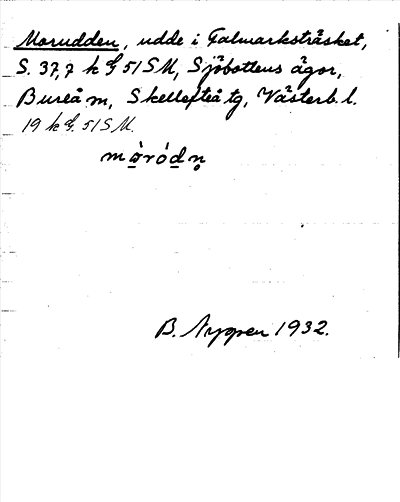 Morudden, udde i Falmarksträsket,
S. 37,7 k g 51 SM, Sjöbottens ägor,
Bureå m, Skellefteå tg, Västerb. l.
19 k g. 51 SM.
mòródn̥
B. Nygren 1932.